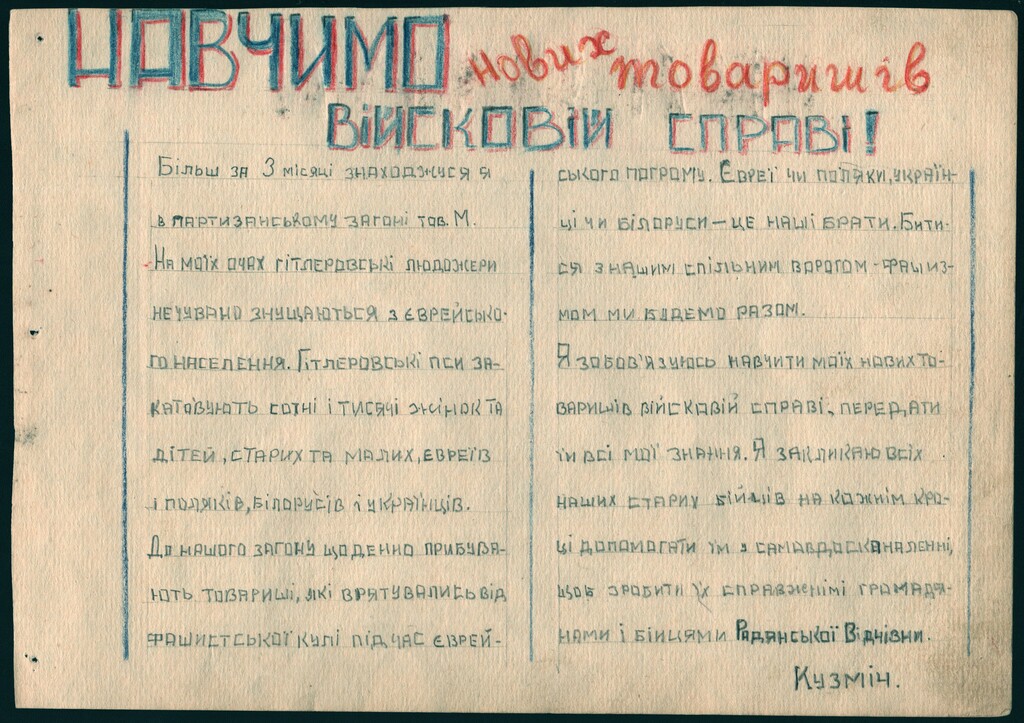 НАВЧИМО нових товаришів
ВІЙСКОВІЙ СПРАВІ!
Більш за 3 місяці знаходжуся я
в партизанському загоні тов. М.
На моїх очах гітлеровські людожери
нечувано знущаються з єврейсько-
го населення. Гітлеровські пси за-
катовують сотні і тисячі жінок та
дітей, старих та малих, євреїв
і поляків, білорусів і українців.
До нашого загону щоденно прибува-
ють товариші, які врятувались від
фашистської кулі під час єврей-
ського погрому. Євреї чи поляки, україн-
ці чи білоруси — це наші брати. Бити-
ся з нашим спільним ворогом - фашиз-
мом ми будемо разом.
Я зобов'язуюсь навчити моїх нових то-
варишів війсковій справі, передати
їм всі мої знання. Я закликаю всіх
наших старих бійців на кожнім кро-
ці допомогати їм у самавдосканаленні,
щоб зробити їх справжнімі громадя-
нами і бійцями Радянської Відчізни.
Кузміч.